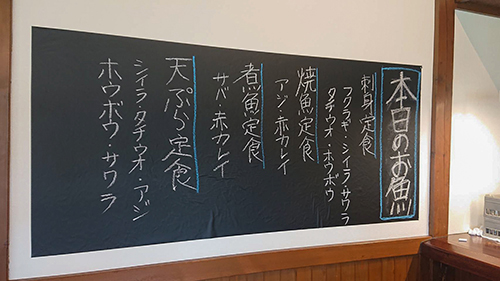 本日のお魚
刺身定食
フクラギ・シイラ・サワラ
タチウオ・ホウボウ
焼魚定食
アジ・赤カレイ
煮魚定食
サバ・赤カレイ
天ぷら定食
シイラタチウオ・アジ
ホウボウ・サワラ